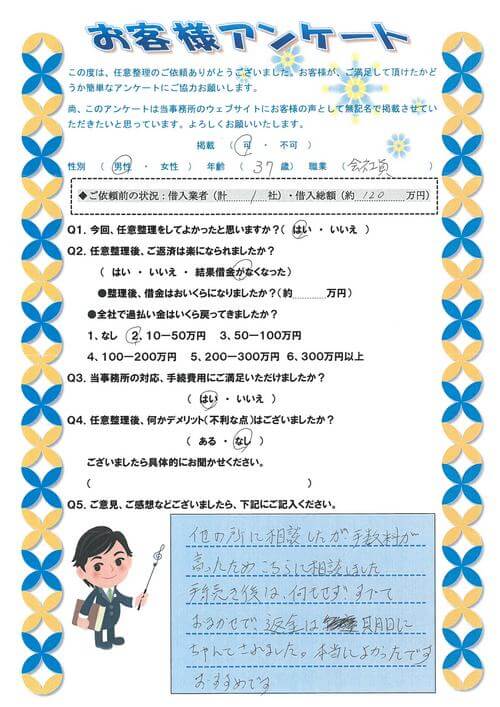 お客様アンケート
この度は、任意整理のご依頼ありがとうございました。お客様が、ご満足して頂けたかど
うか簡単なアンケートにご協力お願いします。
尚、このアンケートは当事務所のウェブサイトにお客様の声として無記名で掲載させてい
ただきたいと思っています。よろしくお願いいたします。
掲載 ( 可 ・ 不可 )
性別 ( 男性 ・ 女性 ) 年齢 ( 37 歳) 職業 ( 会社員 )
◆ご依頼前の状況：借入業者(計 1 社)・借入総額(約 120 万円)
Q1. 今回、任意整理をしてよかったと思いますか?( はい ・ いいえ )
Q2. 任意整理後、ご返済は楽になられましたか?
( はい ・ いいえ ・ 結果借金がなくなった)
●整理後、借金はおいくらになりましたか?(約............万円)
●全社で過払い金はいくら戻ってきましたか?
1、なし 2、10－50万円 3、50－100万円
4、100－200万円 5、200－300万円 6、300万円以上
Q3. 当事務所の対応、手続費用にご満足いただけましたか?
( はい ・ いいえ )
Q4. 任意整理後、何かデメリット(不利な点)はございましたか?
( ある ・ なし )
ございましたら具体的にお聞かせください。
( )
Q5. ご意見、ご感想などございましたら、下記にご記入ください。
他の所に相談したが手数料が
高ったためこちらに相談しました
手続き後は、何もせずすべて
おまかせで返金は 期日に
ちゃんとされました。本当によかったです
おすすめです